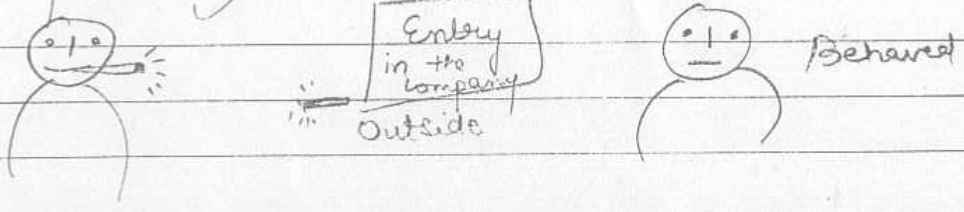 Entry
in the
company
Outside
Behaved